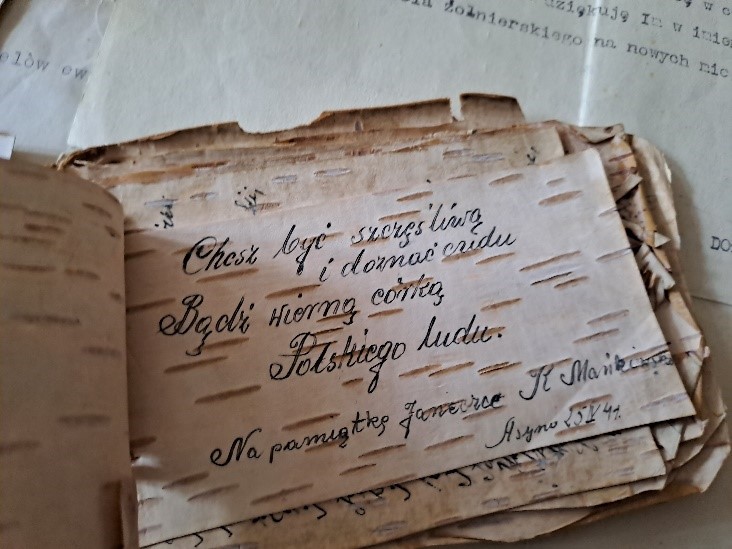 dziękuję Im w imie
żołnierskiego na nowych mie
elów ew
Chcesz być szczęśliwą
i doznać cudu
Bądź wierną córką
Polskiego ludu.
Na pamiątkę Janeczce K
Asyno 25 41.